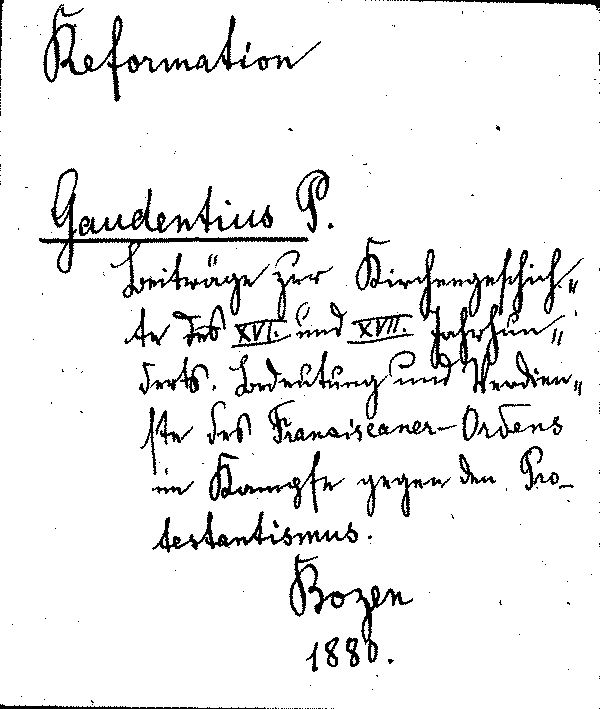 Reformation
Gaudentius P.
Beiträge zur Kirchengeschich-
te des XVI. und XVII. Jahrhun-
derts. Bedeutung und Verdien-
ste des Franciscaner-Ordens
im Kampfe gegen den Pro-
testantismus.
Bozen
1880.